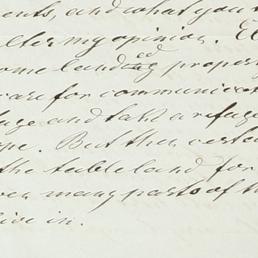 ents, and what you
alter my opinion. El
some landed property
care for communicat
and take a refuge
ope. But then certai
the table land for
ven many parts of th
live in.